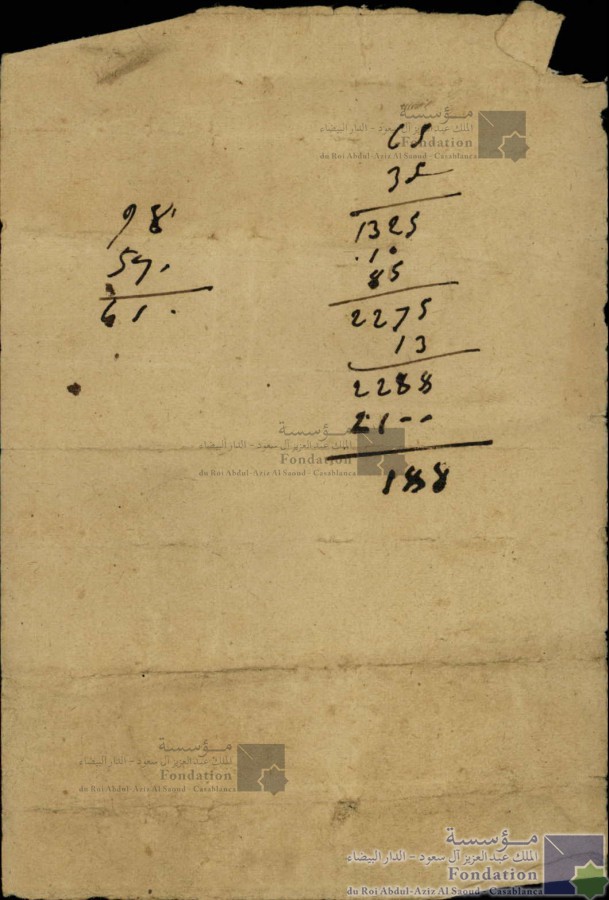 مؤسسة
الملك عبد العزيز آل سعود - الدار البيضاء
Fondation
du Roi Abdul-Aziz Al Saoud - Casablanca
65
35
1325
.1.
85
2275
13
2288
21--
188
98
59.
61.
مؤسسة
الملك عبد العزيز آل سعود - الدار البيضاء
Fondation
du Roi Abdul-Aziz Al Saoud - Casablanca
مؤسسة
الملك عبد العزيز آل سعود - الدار البيضاء
Fondation
du Roi Abdul-Aziz Al Saoud - Casablanca
مؤسسة
الملك عبد العزيز آل سعود - الدار البيضاء
Fondation
du Roi Abdul-Aziz Al Saoud - Casablanca